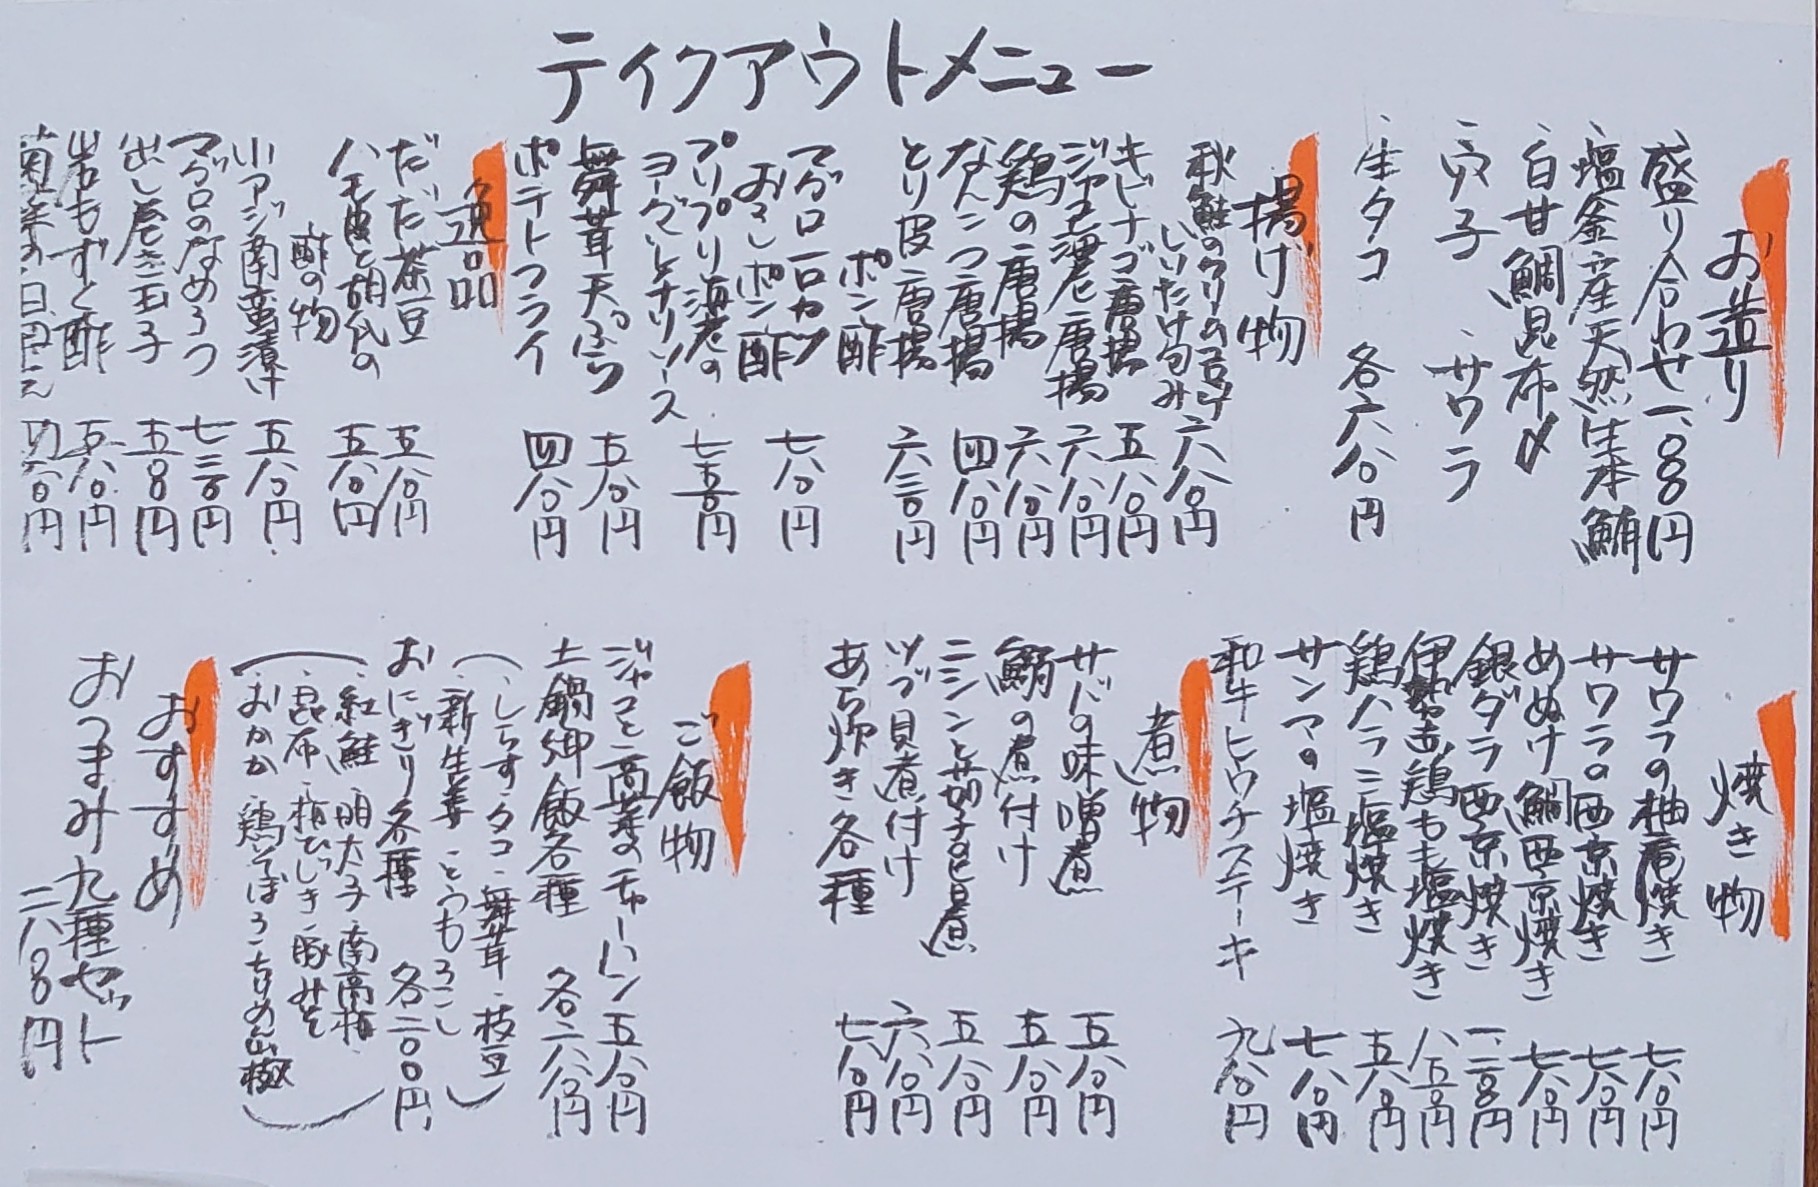 ティクアウトメニュー
お造り
盛り合わせ 一、八〇円
・塩釜産天然生本鮪
・白甘鯛昆布〆
・穴子 ・サワラ
・生タコ 各六八〇円
揚げ物
秋鮭の
しいたけ包み 六八〇円
キビナゴ唐揚 五八〇円
ジャコ 唐揚 六八〇円
鶏の唐揚 六八〇円
なんこつ唐揚 四八〇円
とり皮唐揚
ポン酢 六三〇円
マグロ一口カツ
おろしポン酢 七八〇円
プリプリ海老の
ヨーグルトチリソース 七五〇円
舞茸天ぷら 五八〇円
ポテトフライ 四八〇円
逸品
だだ茶豆 五八〇円
ハモ皮と胡瓜の
酢の物 五八〇円
小アジ南蛮漬け 五八〇円
マグロのなめろう 七三〇円
出し巻き玉子 五五〇円
岩もずく酢 五八〇円
焼き物
サワラの柚庵焼き 七八〇円
サワラの西京焼き 七八〇円
めぬけ鯛西京焼き 七八〇円
銀ダラ西京焼き 一、二八〇円
鶏もも塩焼き 八五〇円
鶏ハラミ塩焼き 五八〇円
サンマの塩焼き 七八〇円
和牛ヒウチステーキ 九八〇円
煮物
サバの味噌煮 五八〇円
鰯の煮付け 五八〇円
ニシンと茄子の旨煮 五八〇円
ツブ貝煮付け 六八〇円
あら炊き各種 七八〇円
ご飯物
ジャコと高菜のチャーハン 五八〇円
土鍋御飯各種 各二八〇円
(・しらす・タコ・舞茸・枝豆
・新生姜 ・とうもろこし)
おにぎり各種 各二〇〇円
(・紅鮭・明太子・南高梅
・昆布・梅ひじき・豚みそ
・おかか・鶏そぼろ・ちりめん山椒)
おすすめ
おつまみ九種セット
二八〇円